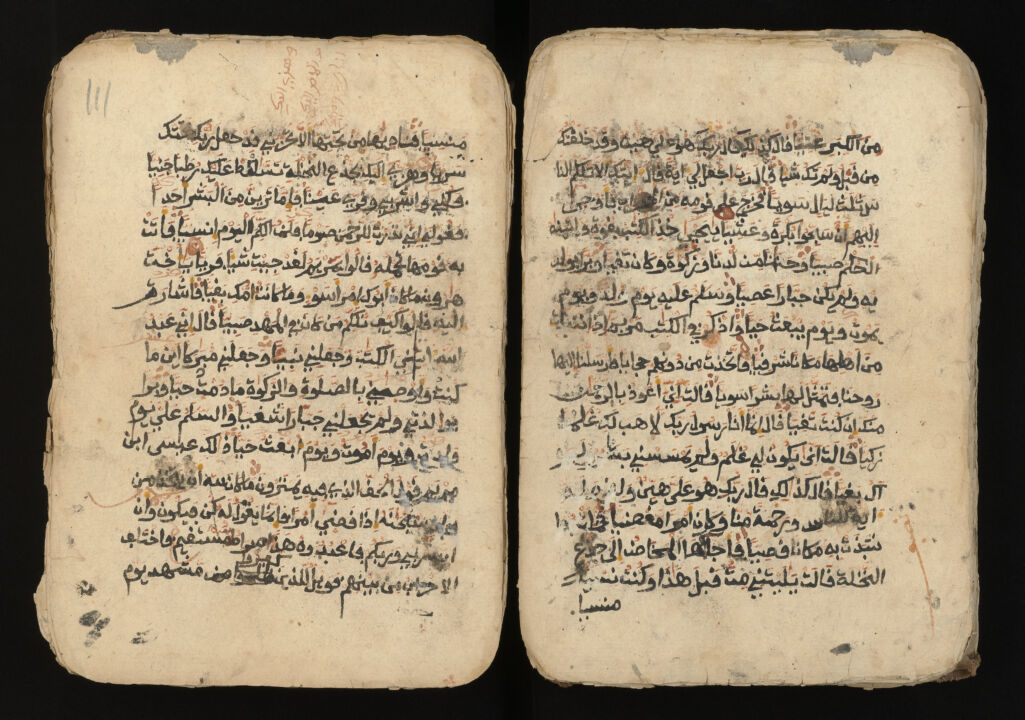 من الكبر عتيا قال كذلك قال ربك هو علي هين وقد خلقتك
من قبل ولم تك شيا قال رب اجعل لي اية قال ايتك الا تكلم النا
س ثلث ليال سويا فخرج على قومه من المحراب فاوحى
اليهم ان سبحوا بكرة وعشيا يايحيى خذ الكتب بقوة واتينه
الحكم صبيا وحنانا من لدنا وزكوة وكان تقيا وبرا بولد
يه ولم يكن جبارا عصيا وسلم عليه يوم ولد ويوم
يموت ويوم يبعث حيا واذكر في الكتب مريم اذ انتبذت
من اهلها مكانا شرقيا فاتخذت من دونهم حجابا فارسلنا اليها
روحنا فتمثل لها بشرا سويا قالت اني اعوذ بالرحمن
منك ان كنت تقيا قال انما انا رسول ربك لاهب لك غلما
زكيا قالت انى يكون لي غلم ولم يمسسني بشر ولم
اك بغيا قال كذلك قال ربك هو علي هين ولنجعله
اية للناس ورحمة منا وكان امرا مقضيا
نتبذت به مكانا قصيا فاجاها المخاض الى جذع
النخلة قالت يليتني مت قبل هذا وكنت نسيا
منسيا
منسيا فنادىها من تحتها الا تحزني قد جعل ربك تحتك
سريا وهزي اليك بجذع النخلة تسقط عليك رطبا جنيا
فكلي واشربي وقري عينا فاما ترين من البشر احدا
فقولي اني نذرت للرحمن صوما فلن اكلم اليوم انسيا فاتت
به قومها تحمله قالوا يمريم لقد جيت شيا فريا ياخت
هرون ما كان ابوك امرا سوء وما كانت امك بغيا فاشارت
اليه قالوا كيف نكلم من كان في المهد صبيا قال اني عبد
الله اتىني الكتب وجعلني نبيا وجعلني مبركا اين ما
كنت واوصىني بالصلوة والزكوة ما دمت حيا وبرا
بولدتي ولم يجعلني جبارا شقيا والسلم علي يوم
ولدت ويوم اموت ويوم ابعث حيا ذلك عيسى ابن
مريم قول الحق الذي فيه يمترون ما كان لله ان يتخذ من
ولد سبحنه اذا قضى امرا فانما يقول له كن فيكون وان
الله ربي وربكم فاعبدوه هذا صراط مستقيم فاختلف
الاحزاب من بينهم فويل للذين كفروا من مشهد يوم